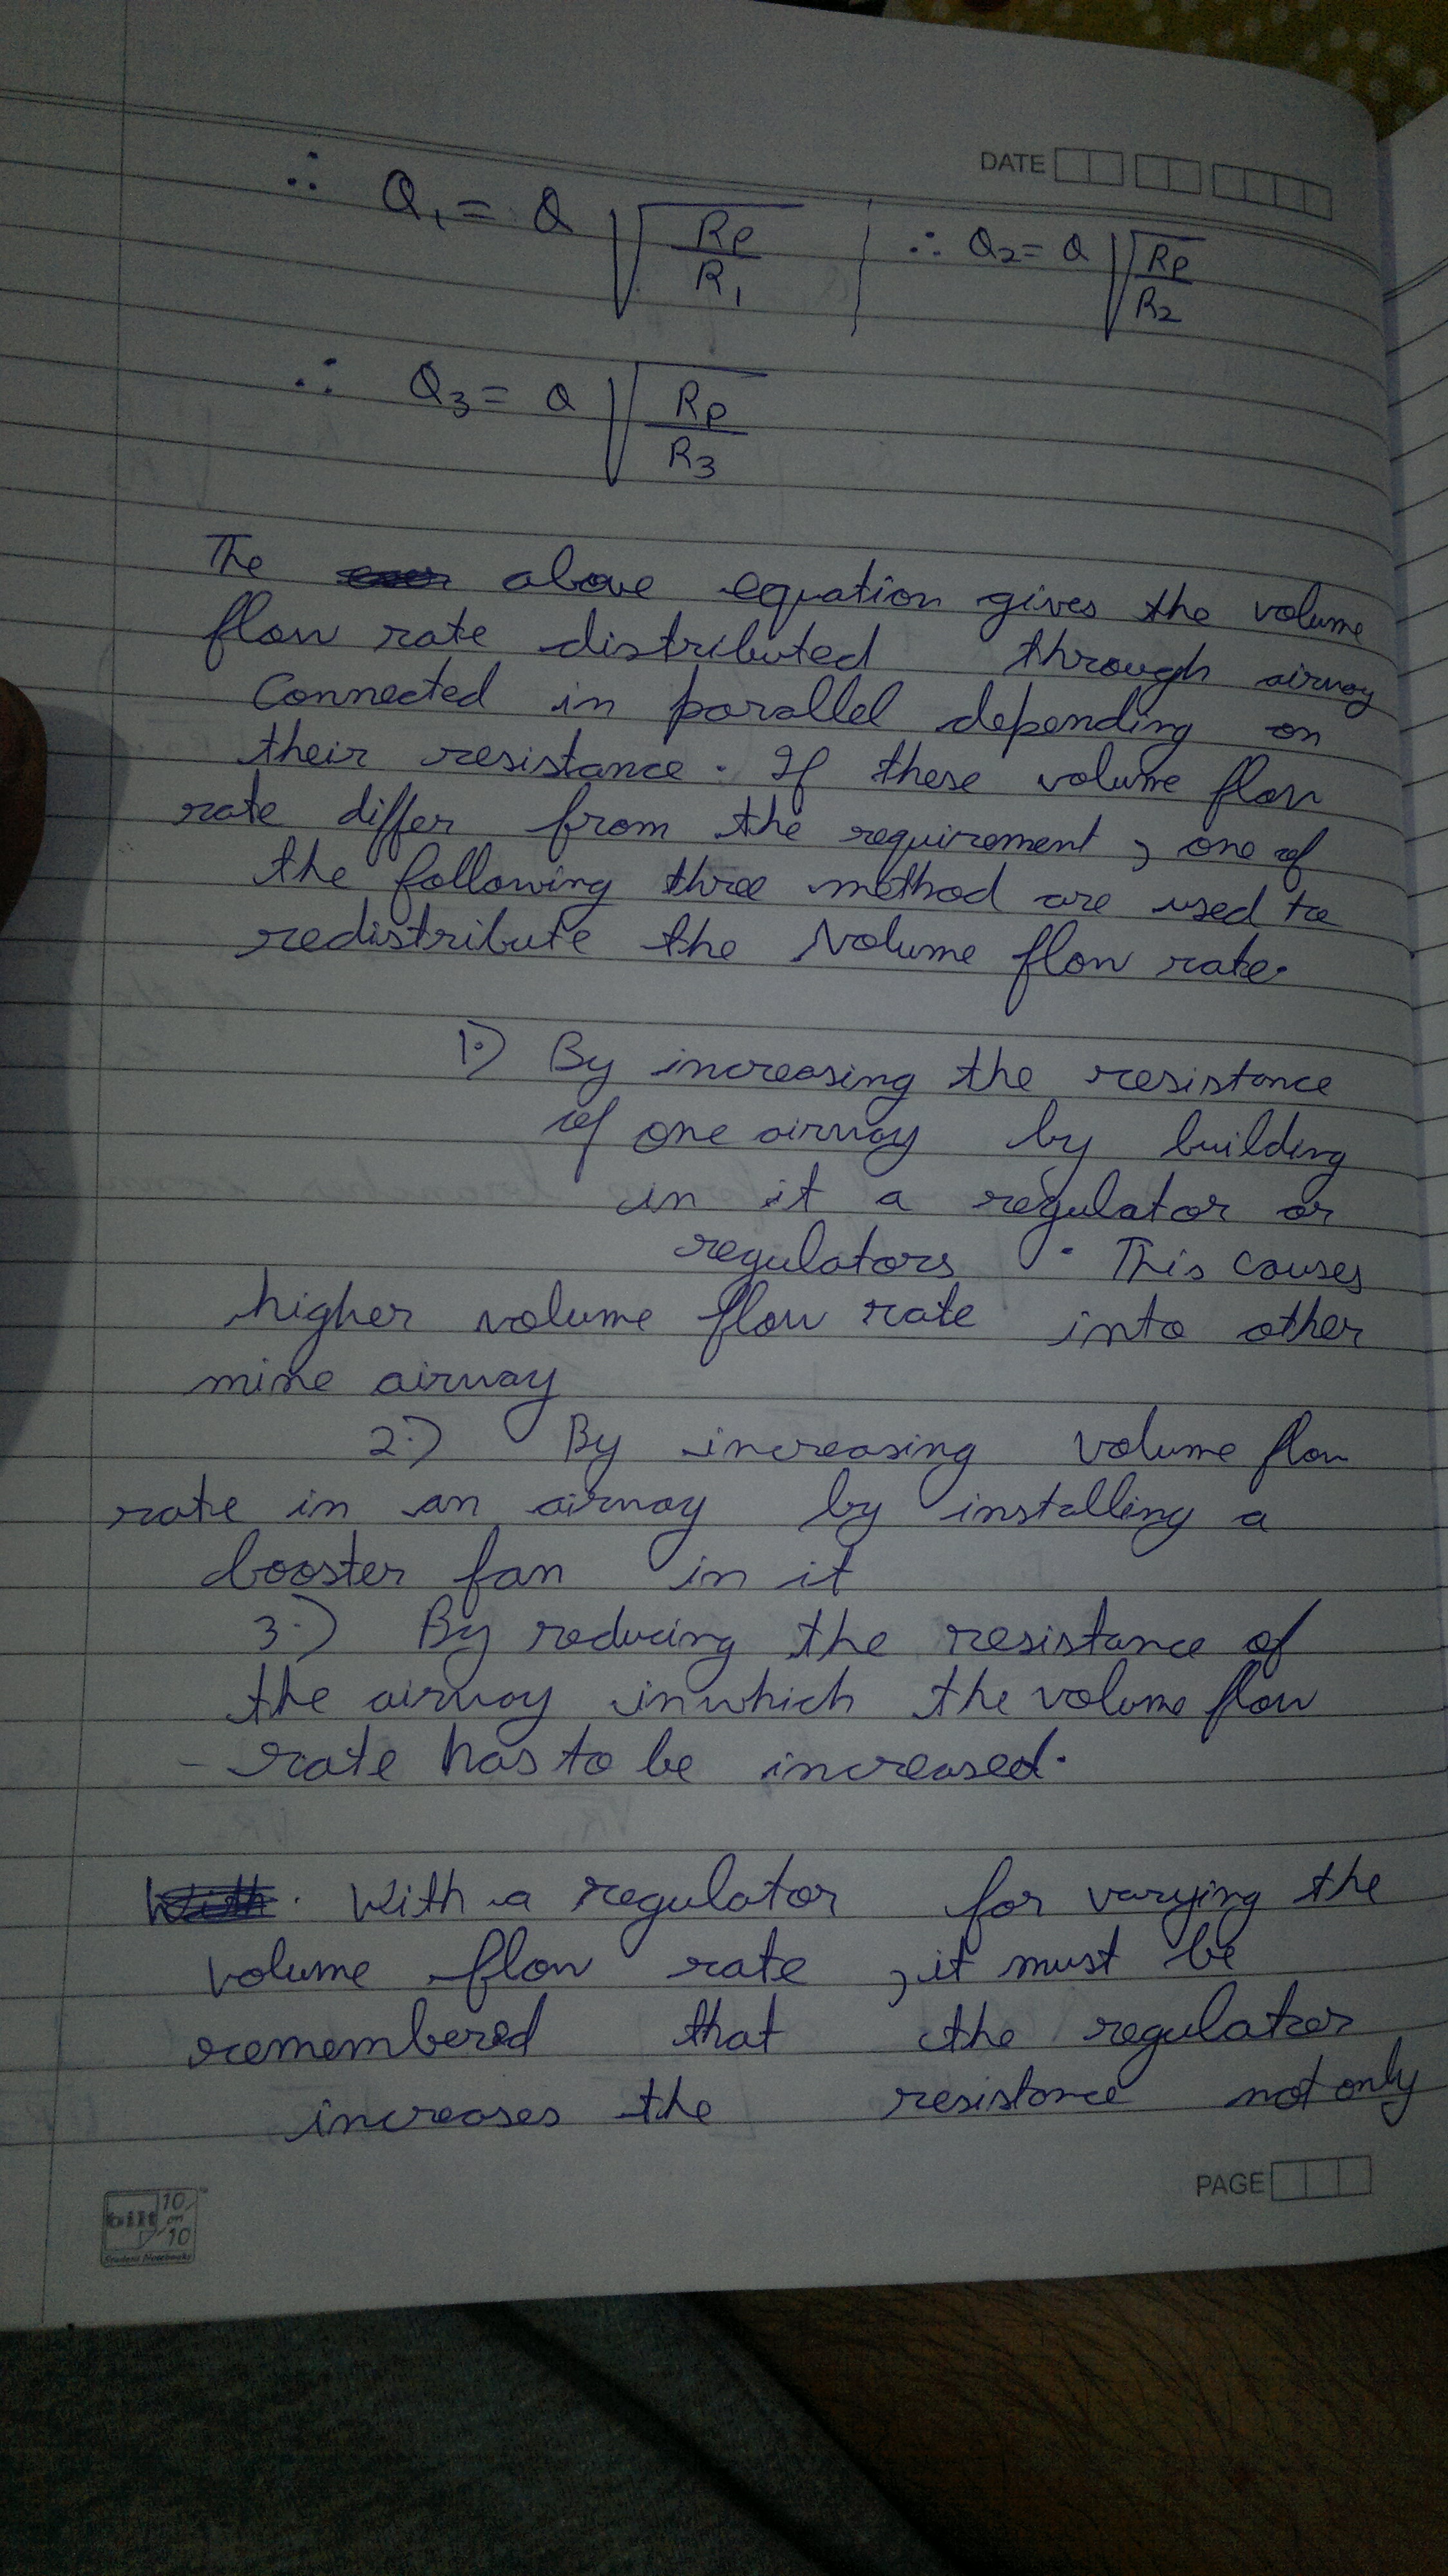 DATE
∴ Q₁ = Q √(Rp/R₁) | ∴ Q₂ = Q √(Rp/R₂)
∴ Q₃ = Q √(Rp/R₃)
The above equation gives the volume
flow rate distributed through airway
Connected in parallel depending on
their resistance. If these volume flow
rate differ from the requirement, one of
the following three method are used to
redistribute the Volume flow rate.
1.) By increasing the resistance
of one airway by building
in it a regulator or
regulators. This causes
higher volume flow rate into other
mine airway
2.) By increasing volume flow
rate in an airway by installing a
booster fan in it
3.) By reducing the resistance of
the airway in which the volume flow
- rate has to be increased.
With a regulator for varying the
volume flow rate, it must be
remembered that the regulator
increases the resistance not only
PAGE
bilt 10 on 10
Student Notebooks